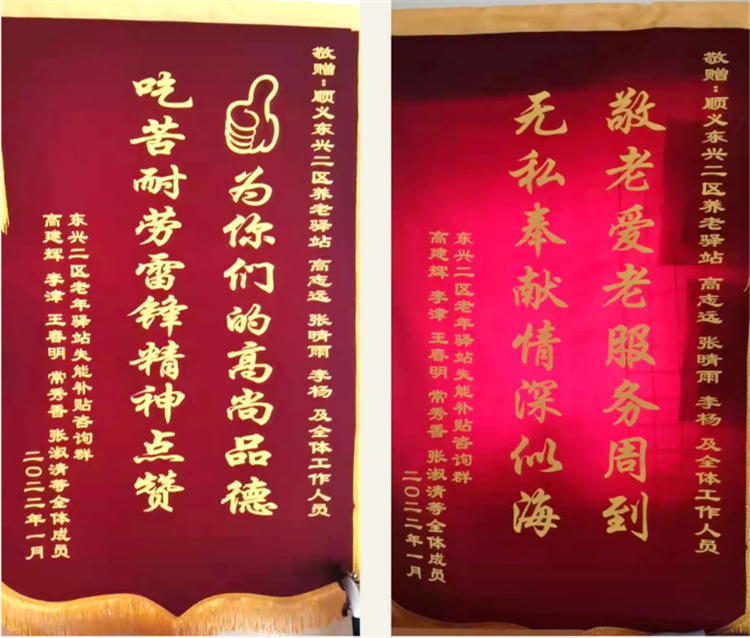 敬赠：顺义东兴二区养老驿站 高志远 张晴雨 李杨 及全体工作人员
为你们的高尚品德
吃苦耐劳雷锋精神点赞
东兴二区老年驿站失能补贴咨询群
高建辉 李津 王春明 常秀香 张淑清等全体成员
二〇二二年一月
敬赠：顺义东兴二区养老驿站 高志远 张晴雨 李杨 及全体工作人员
敬老爱老服务周到
无私奉献情深似海
东兴二区老年驿站失能补贴咨询群
高建辉 李津 王春明 常秀香 张淑清等全体成员
二〇二二年一月